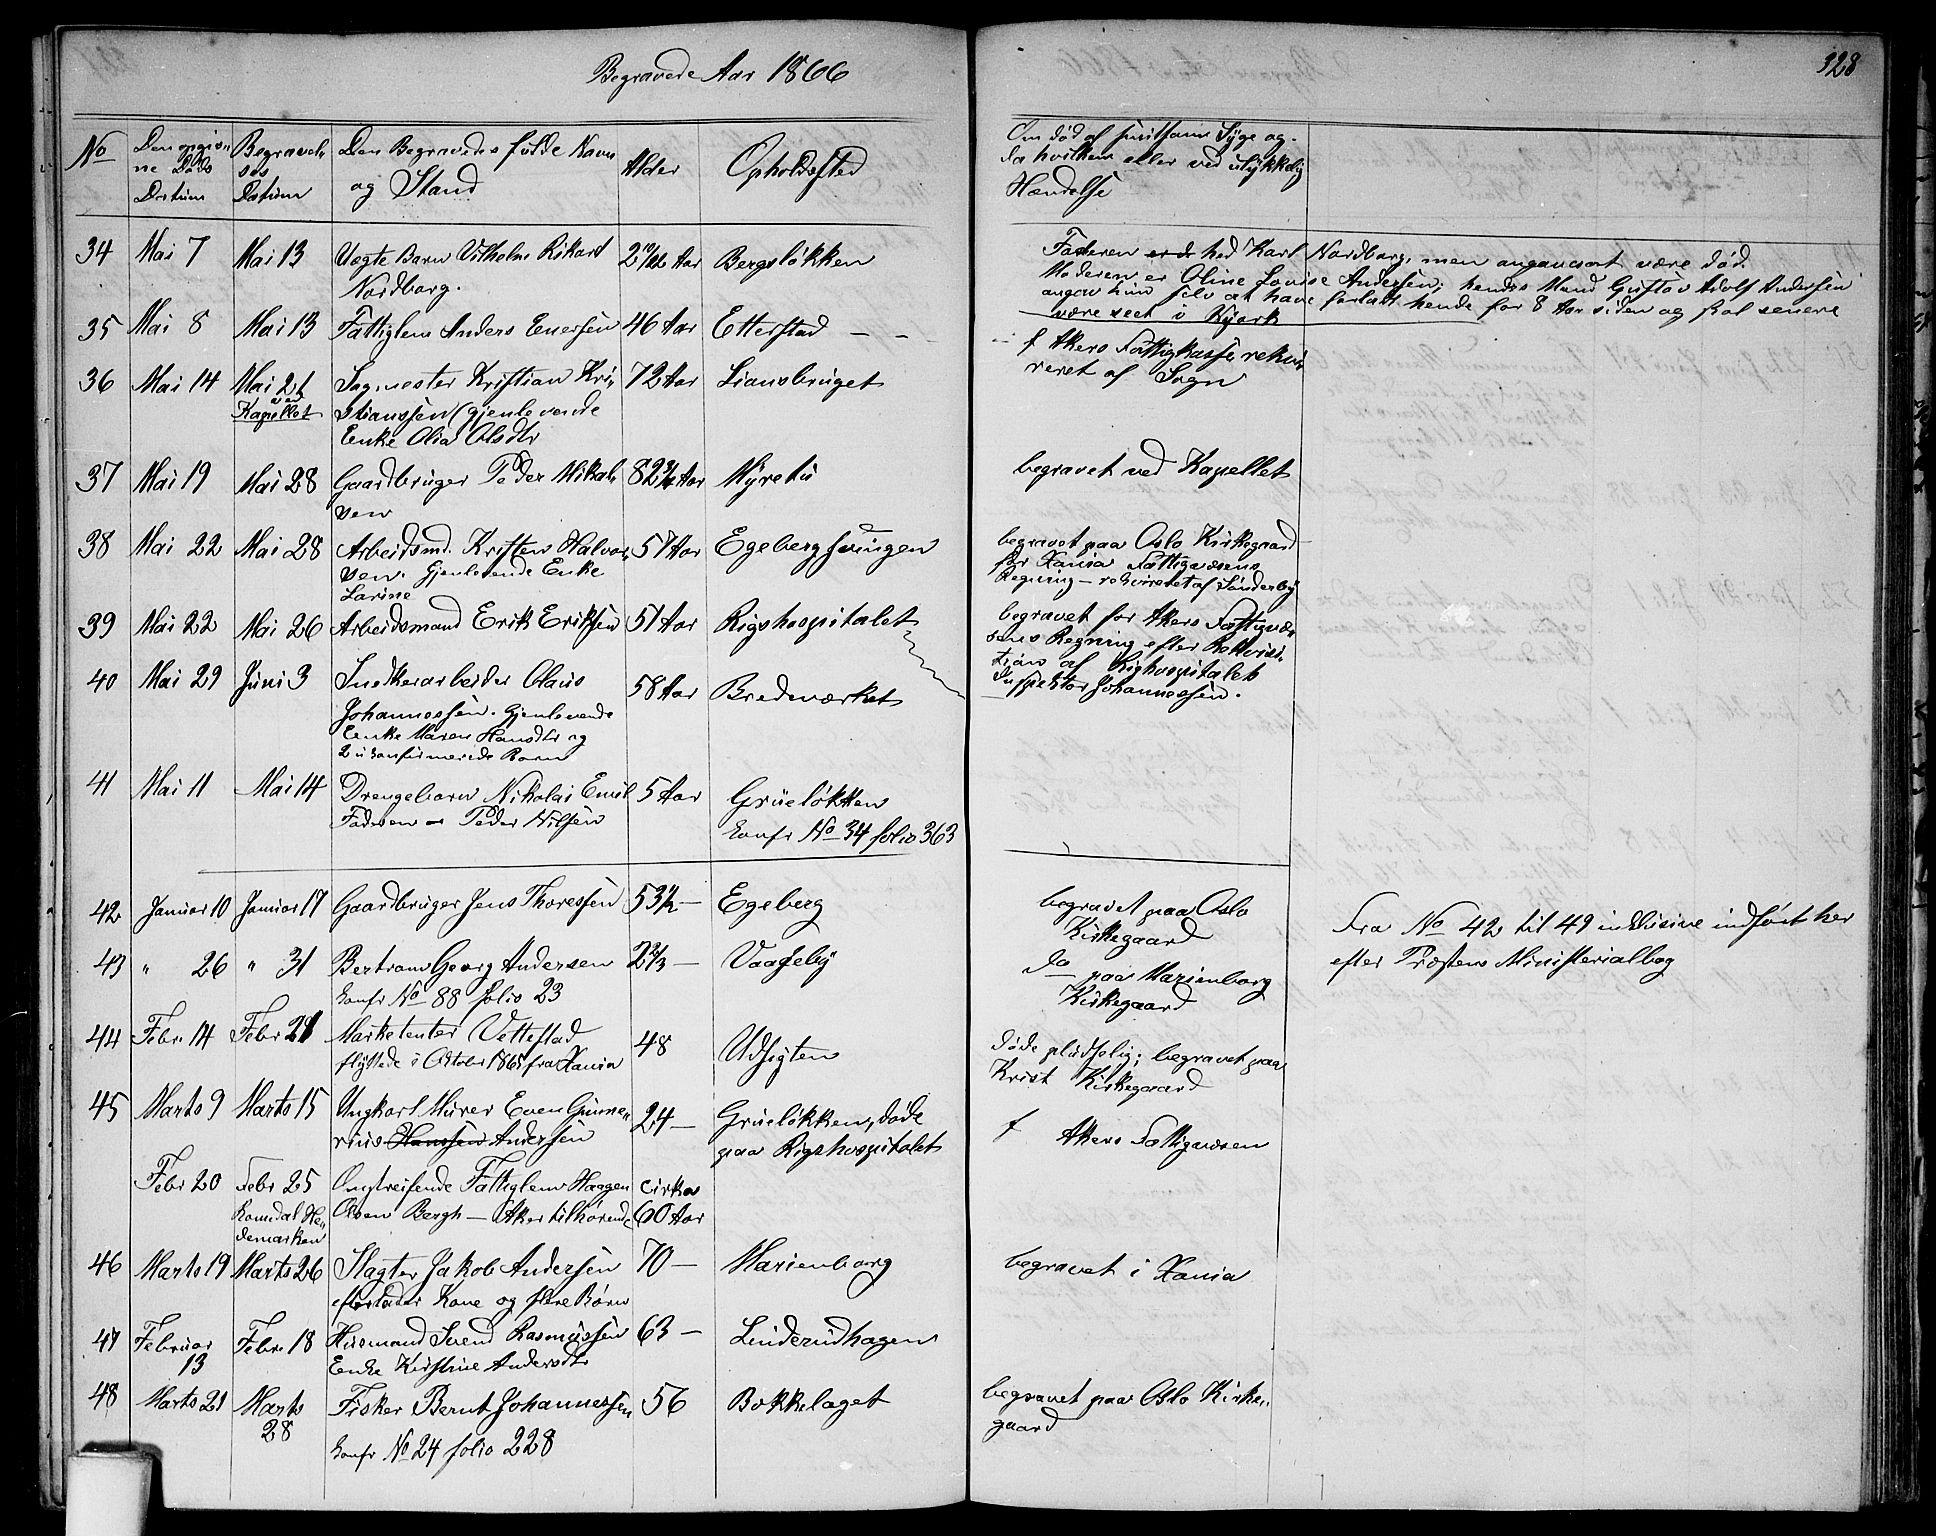 Begravede Aar 1866
328
No
Den opgiv-
ne Døds
Datum
Begravel-
ses
Datum
Den Begravedes fulde Navn
og Stand
Alder
Opholdssted
Om død af smitsom Syge og
da hvilken eller ved ulykkelig
Hændelse
34 Mai 7 Mai 13 Uægte Barn Vilhelm Rikard 2 10/12 Aar Bergsløkken
Nordborg.
Faderen er d hed Karl Nordborg, men angaves at være død.
Moderen er Oline Lovise Andersen; hendes Mand Gustav Adolf Andersen
angav hun selv at have forladt hende for 8 Aar siden og skal senere
være seet i
35 Mai 8 Mai 13 Fattiglem Anders Enersen 46 Aar Etterstad - -
f Akers Fattigkasse, rekvi-
reret af Sogn
36 Mai 14 Mai 21 Sagmester Kristian Kri- 72 Aar Liansbruget
ved
Kapellet
stianssen (gjenlevende
Enke Olia Olsdtr
37 Mai 19 Mai 28 Gaardbruger Peder Mikal- 82 3/4 Aar Myrelii
sen
begravet ved Kapellet
38 Mai 22 Mai 28 Arbeidsmd. Kristen Halvor- 57 Aar Egebergsvingen
sen. Gjenlevende Enke
Larine
begravet paa Oslo Kirkegaard
for Xania Fattigvæsens
Regning - rekvireret af Sønderby
39 Mai 22 Mai 26 Arbeidsmand Erik Eriksen 51 Aar Rigshospitalet
begravet for Akers Fattigvæ-
sens Regning efter Rekvisi-
tion af Righospitalets
Inspektør Johannessen.
40 Mai 29 Juni 3 Snedkerarbeider Olaus 58 Aar Bredeværket
Johannessen. Gjenlevende
Enke Maren Hansdtr og
2 ukonfirmerede Børn
41 Mai 11 Mai 14 Drengebarn Nikolai Emil 5 Aar Grüeløkken
Faderen - Peder Nilsen
konfr No 34 folio 363
42 Januar 10 Januar 17 Gaardbruger Jens Thoressen 53 1/2 - Egeberg
begravet paa Oslo
Kirkegaard
Fra No 42 til 49 inklusive indført her
efter Præstens Ministerialbog
43 " 26 " 31 Bertram Georg Andersen 2 2/3 - Vaageby
konfr No 88 folio 23
do paa Marienborg
Kirkegaard
44 Febr. 14 Febr 21 Marketenter Vettestad 48 Udsigten
flyttede i Oktober 1865 fra Xania
døde pludselig; begravet paa
Krist Kirkegaard
45 Marts 9 Marts 15 Ungkarl Murer Even Gunne- 24 - Grüeløkken, døde
rius Hanssen Andersen
paa Rigshospitalet
f Akers Fattigvæsen
Febr 20 Febr 25 Omstreifende Fattiglem Haagen cirka
Romedal He-
demarken
Olsen Bergh - Aker tilhørende 60 Aar
46 Marts 19 Marts 26 Slagter Jakob Andersen 70 - Marienborg
efterlader Kone og flere Børn
begravet i Xania
47 Februar
13
Febr. 18 Husmand Svend Rasmussen 63 - Linderudhagen
Enke Kirstine Andersdtr
48 Marts 21 Marts
28
Fisker Bernt Johannessen 56 Bækkelaget
konfr No 24 folio 228
begravet paa Oslo Kirke-
gaard